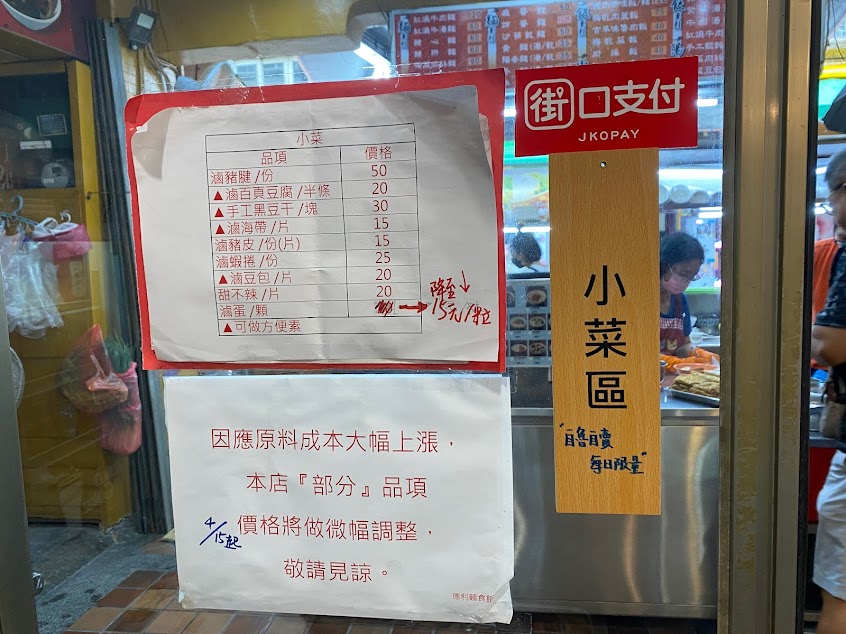 小菜
品項 價格
滷豬腱/份 50
▲滷百頁豆腐/半條 20
▲手工黑豆干/塊 30
▲滷海帶/片 15
滷豬皮/份(片) 15
滷蝦捲/份 25
▲滷豆包/片 20
甜不辣/片 20
滷蛋/顆 → 15元/粒
降至↓
▲可做方便素
因應原料成本大幅上漲，
本店『部分』品項
4/15起 價格將做微幅調整，
敬請見諒。
德利麵食館
街口支付
JKOPAY
小菜區
"自魯自賣
每日限量"